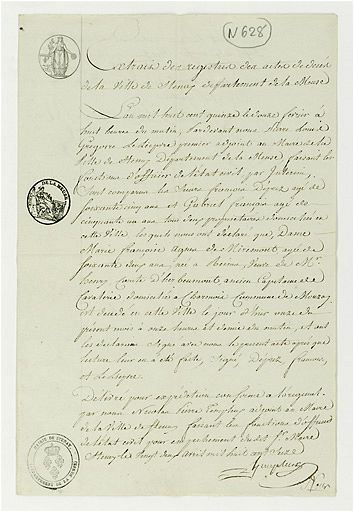 N 628
Extrait des registres des actes de décès
de la Ville de Stenay département de la Meuse
L'an mil huit cent quinze le douze février à
huit heures du matin, pardevant nous Pierre Louis
Grégoire premier adjoint au Maire de la
Ville de Stenay Département de la Meuse faisant les
fonctions d'officier de l'état civil par
Sont comparus les Sieurs françois Dupuy agé de
soixante cinq ans et Gabriel françois agé de
cinquante un ans tous deux propriétaires domiciliés en
cette Ville lesquels nous ont déclaré que, Dame
Marie françoise de Miremont agée de
soixante ans née à Veuve de Mr
henry Comte D'herbemont ancien Capitaine de
Cavalerie domicilié à Charmois Commune de Mouzay
est décédé en cette Ville le jour d'hier onze du
présent mois à onze heures et demie du matin, et ont
les déclarans Signé avec nous le présent acte après que
lecture leur en a été faite, Signé Dupuy françois
et
Délivré pour expédition conforme à l'original
par nous Nicolas adjoint au Maire
de la ville de Stenay faisant les fonctions d'officier
de l'état civil pour empêchement du dit Sr. Maire
Stenay le vingt deux avril mil huit cent